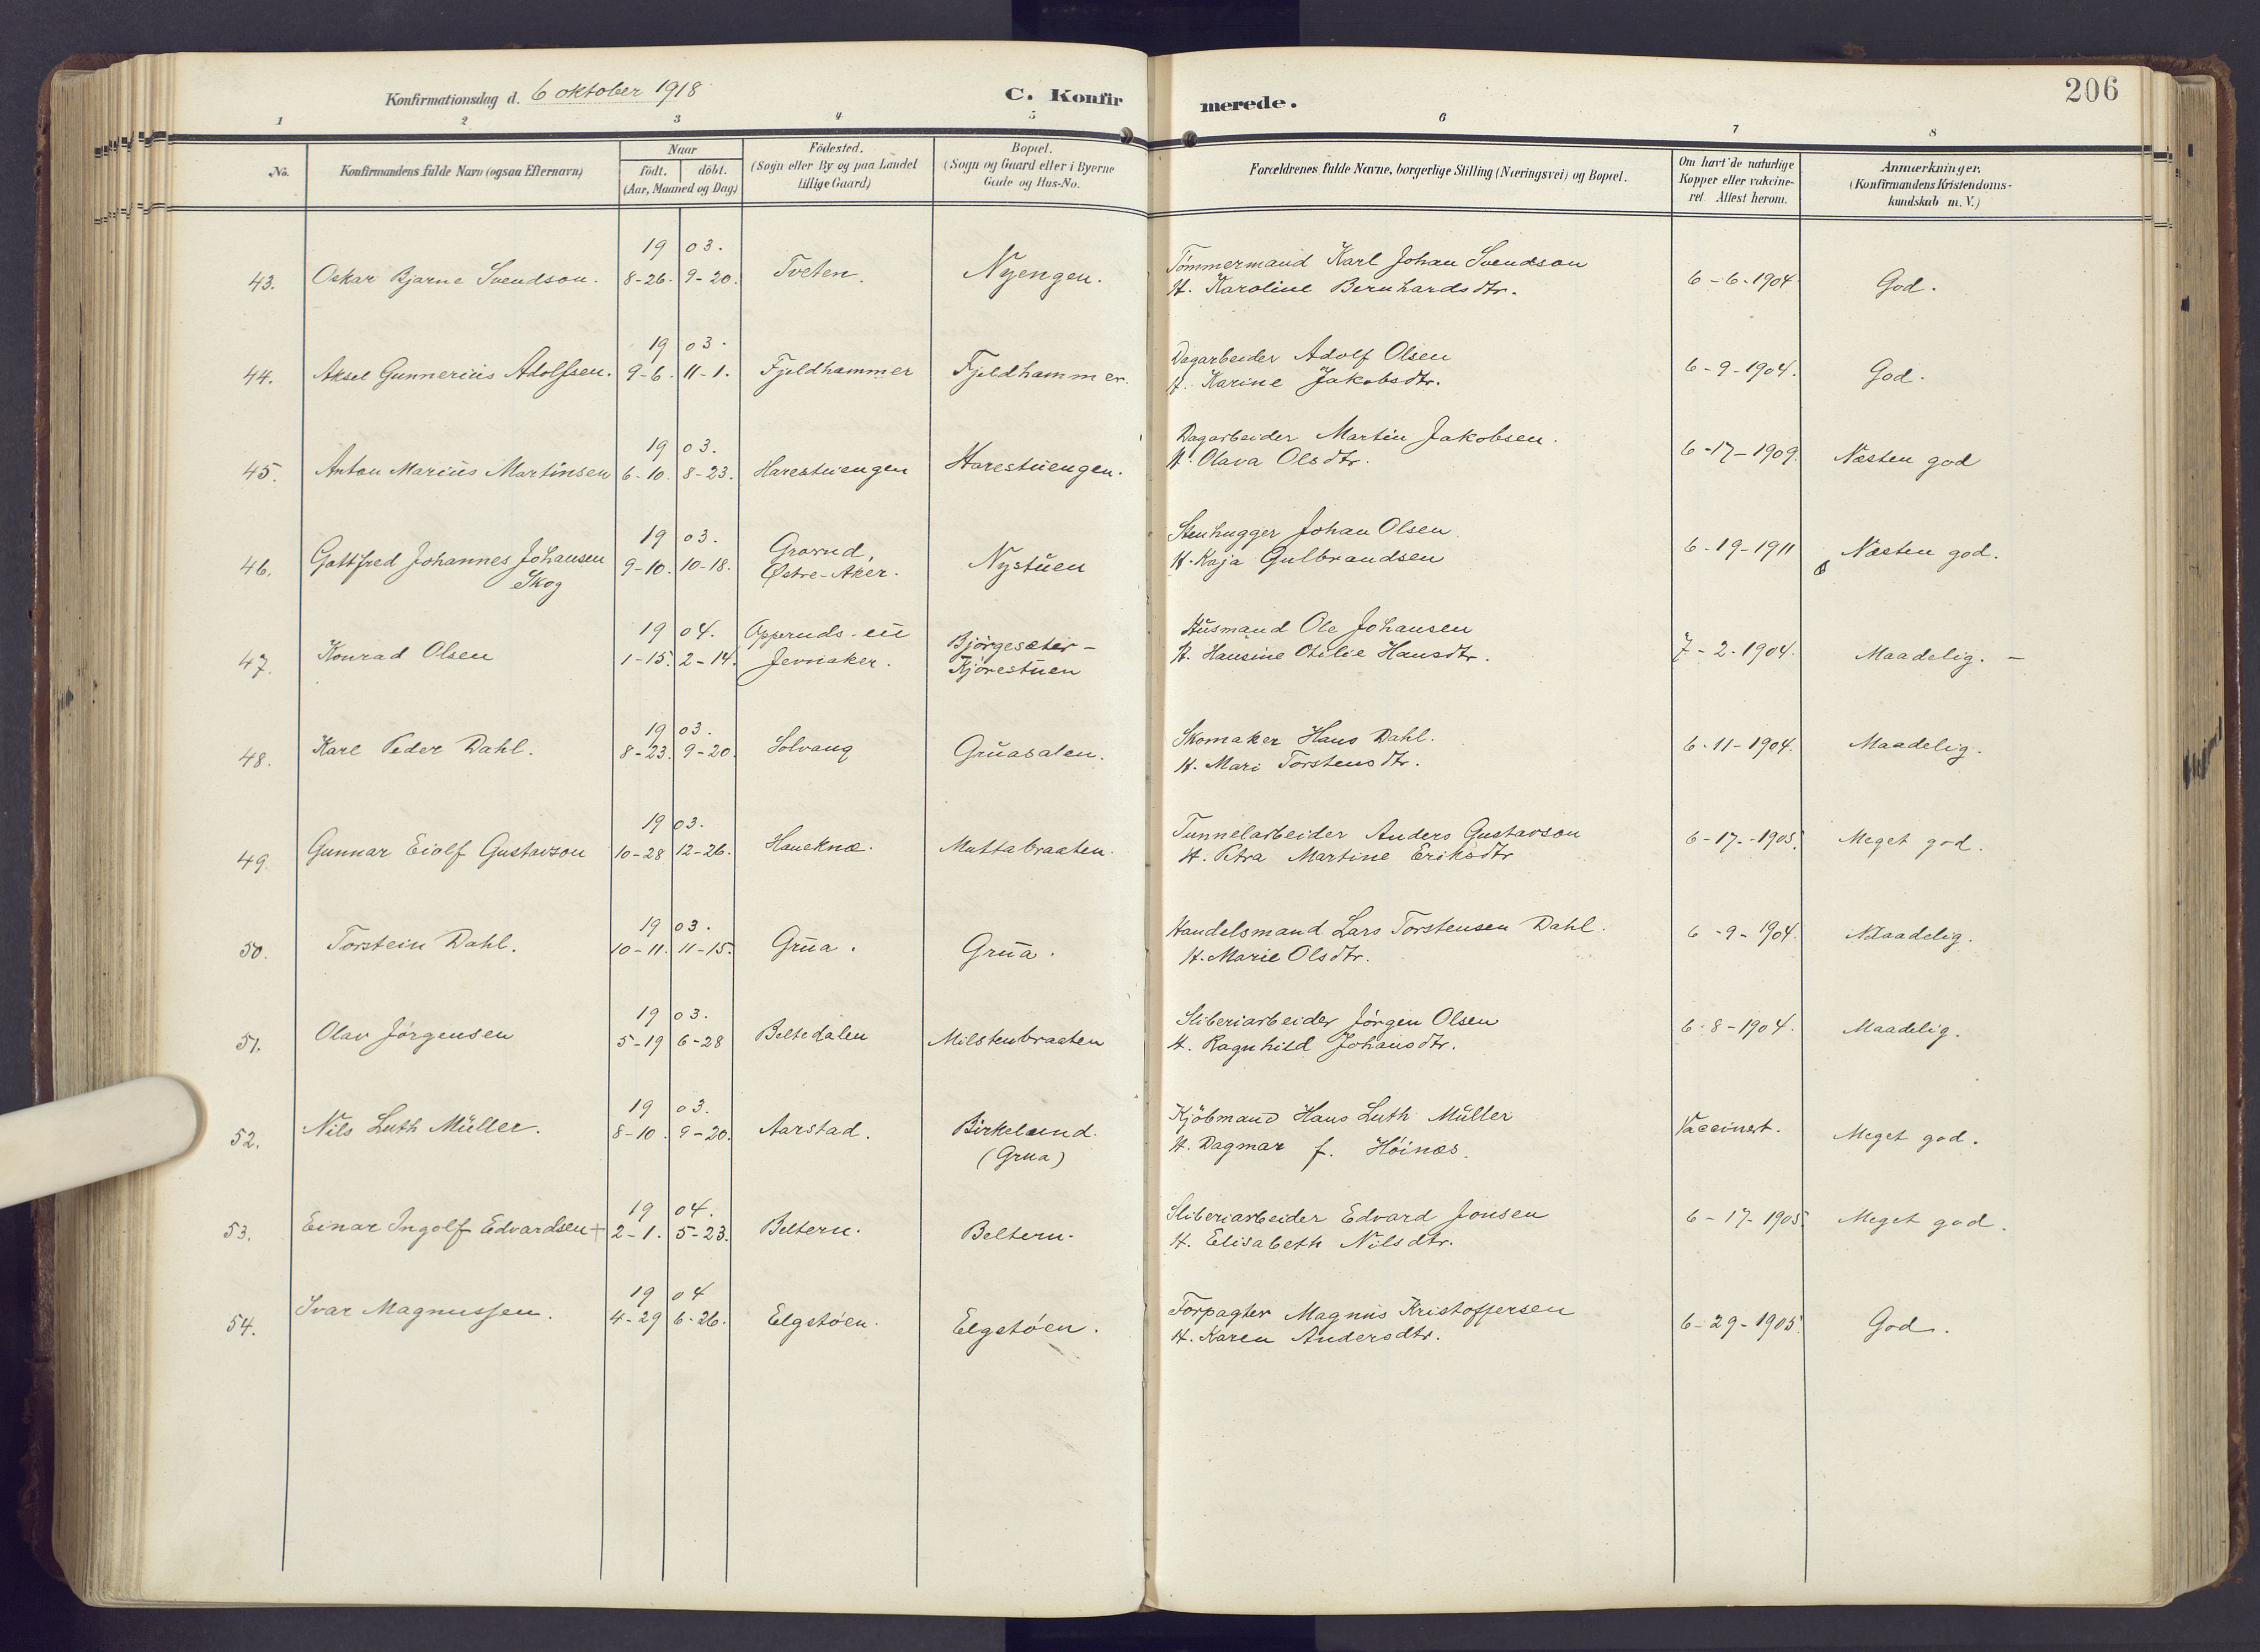 Konfirmationsdag d. 6 oktober 1918
C. Konfirmerede.
206
1 2 3 4 5 6 7 8
No.
Konfirmandens fulde Navn (ogsaa Efternavn)
Naar
födt. döbt.
(Aar, Maaned og Dag)
Födested.
(Sogn eller By og paa Landet
tillige Gaard)
Bopæl.
(Sogn og Gaard eller i Byerne
Gade og Hus-No.
Forældrenes fulde Navne, borgerlige Stilling (Næringsvei) og Bopæl.
Om havt de naturlige
Kopper eller vakcine-
ret. Attest herom.
Anmærkninger.
(Konfirmandens Kristendoms-
kundskab m. V.)
19 03.
43. Oskar Bjarne Svendson. 8-26. 9-20. Tveten. Nyengen. Tömmermand Karl Johan Svendson
H. Karoline Bernhardsdtr. 6-6-1904 God.
19 03.
44. Aksel Gunnerius Adolfsen. 9-6. 11-1. Fjeldhammer Fjeldhammer. Dagarbeider Adolf Olsen
H. Karine Jakobsdtr. 6-9-1904. God.
19 03.
45. Anton Marius Martinsen 6-10. 8-23. Harestuengen Harestuengen. Dagarbeider Martin Jakobsen.
H. Olava Olsdtr. 6-17-1909. Næsten god
19 03.
46. Gottfred Johannes Johansen
Skog 9-10. 10-18. Grorud,
Østre-Aker. Nystuen Stenhugger Johan Olsen.
H. Kaja Gulbrandsen 6-19-1911 Næsten god.
19 04.
47. Konrad Olsen 1-15. 2-14. Opperuds-eie
Jevnaker. Bjørgesæter-
Kjörestuen Husmand Ole Johansen
H. Hansine Otilie Hansdtr. 7-2-1904. Maadelig. -
19 03.
48. Karl Peder Dahl. 8-23. 9-20. Solvang Gruasalen. Skomaker Hans Dahl.
H. Mari Torstensdtr. 6-11-1904. Maadelig.
19 03.
49. Gunnar Eiolf Gustavson 10-28 12-26. Haneknæ. Muttabraaten. Tunnelarbeider Anders Gustavson
H. Petra Martine Eriksdtr 6-17-1905. Meget god.
19 03.
50. Torstein Dahl. 10-11. 11-15. Grua. Grua. Handelsmand Lars Torstensen Dahl.
H. Marie Olsdtr. 6-9-1904. Maadelig.
19 03.
51. Olav Jörgensen 5-19 6-28 Beltedalen Milstenbraaten Sliberiarbeider Jörgen Olsen
H. Ragnhild Johansdtr. 6-8-1904. Maadelig.
19 03.
52. Nils Luth Müller. 8-10. 9-20. Aarstad. Birkelund.
(Grua) Kjöbmand Hans Luth Müller
H. Dagmar f. Höinæs. Vaccinert. Meget god.
19 04.
53. Einar Ingolf Edvardsen + 2-1. 5-23. Beltern. Beltern. Sliberiarbeider Edvard Jonsen
H. Elisabeth Nilsdtr. 6-17-1905. Meget god.
19 04
54. Ivar Magnussen. 4-29 6-26. Elgstöen. Elgstöen. Forpagter Magnus Kristoffersen
H. Karen Andersdtr. 6-29-1905. God.